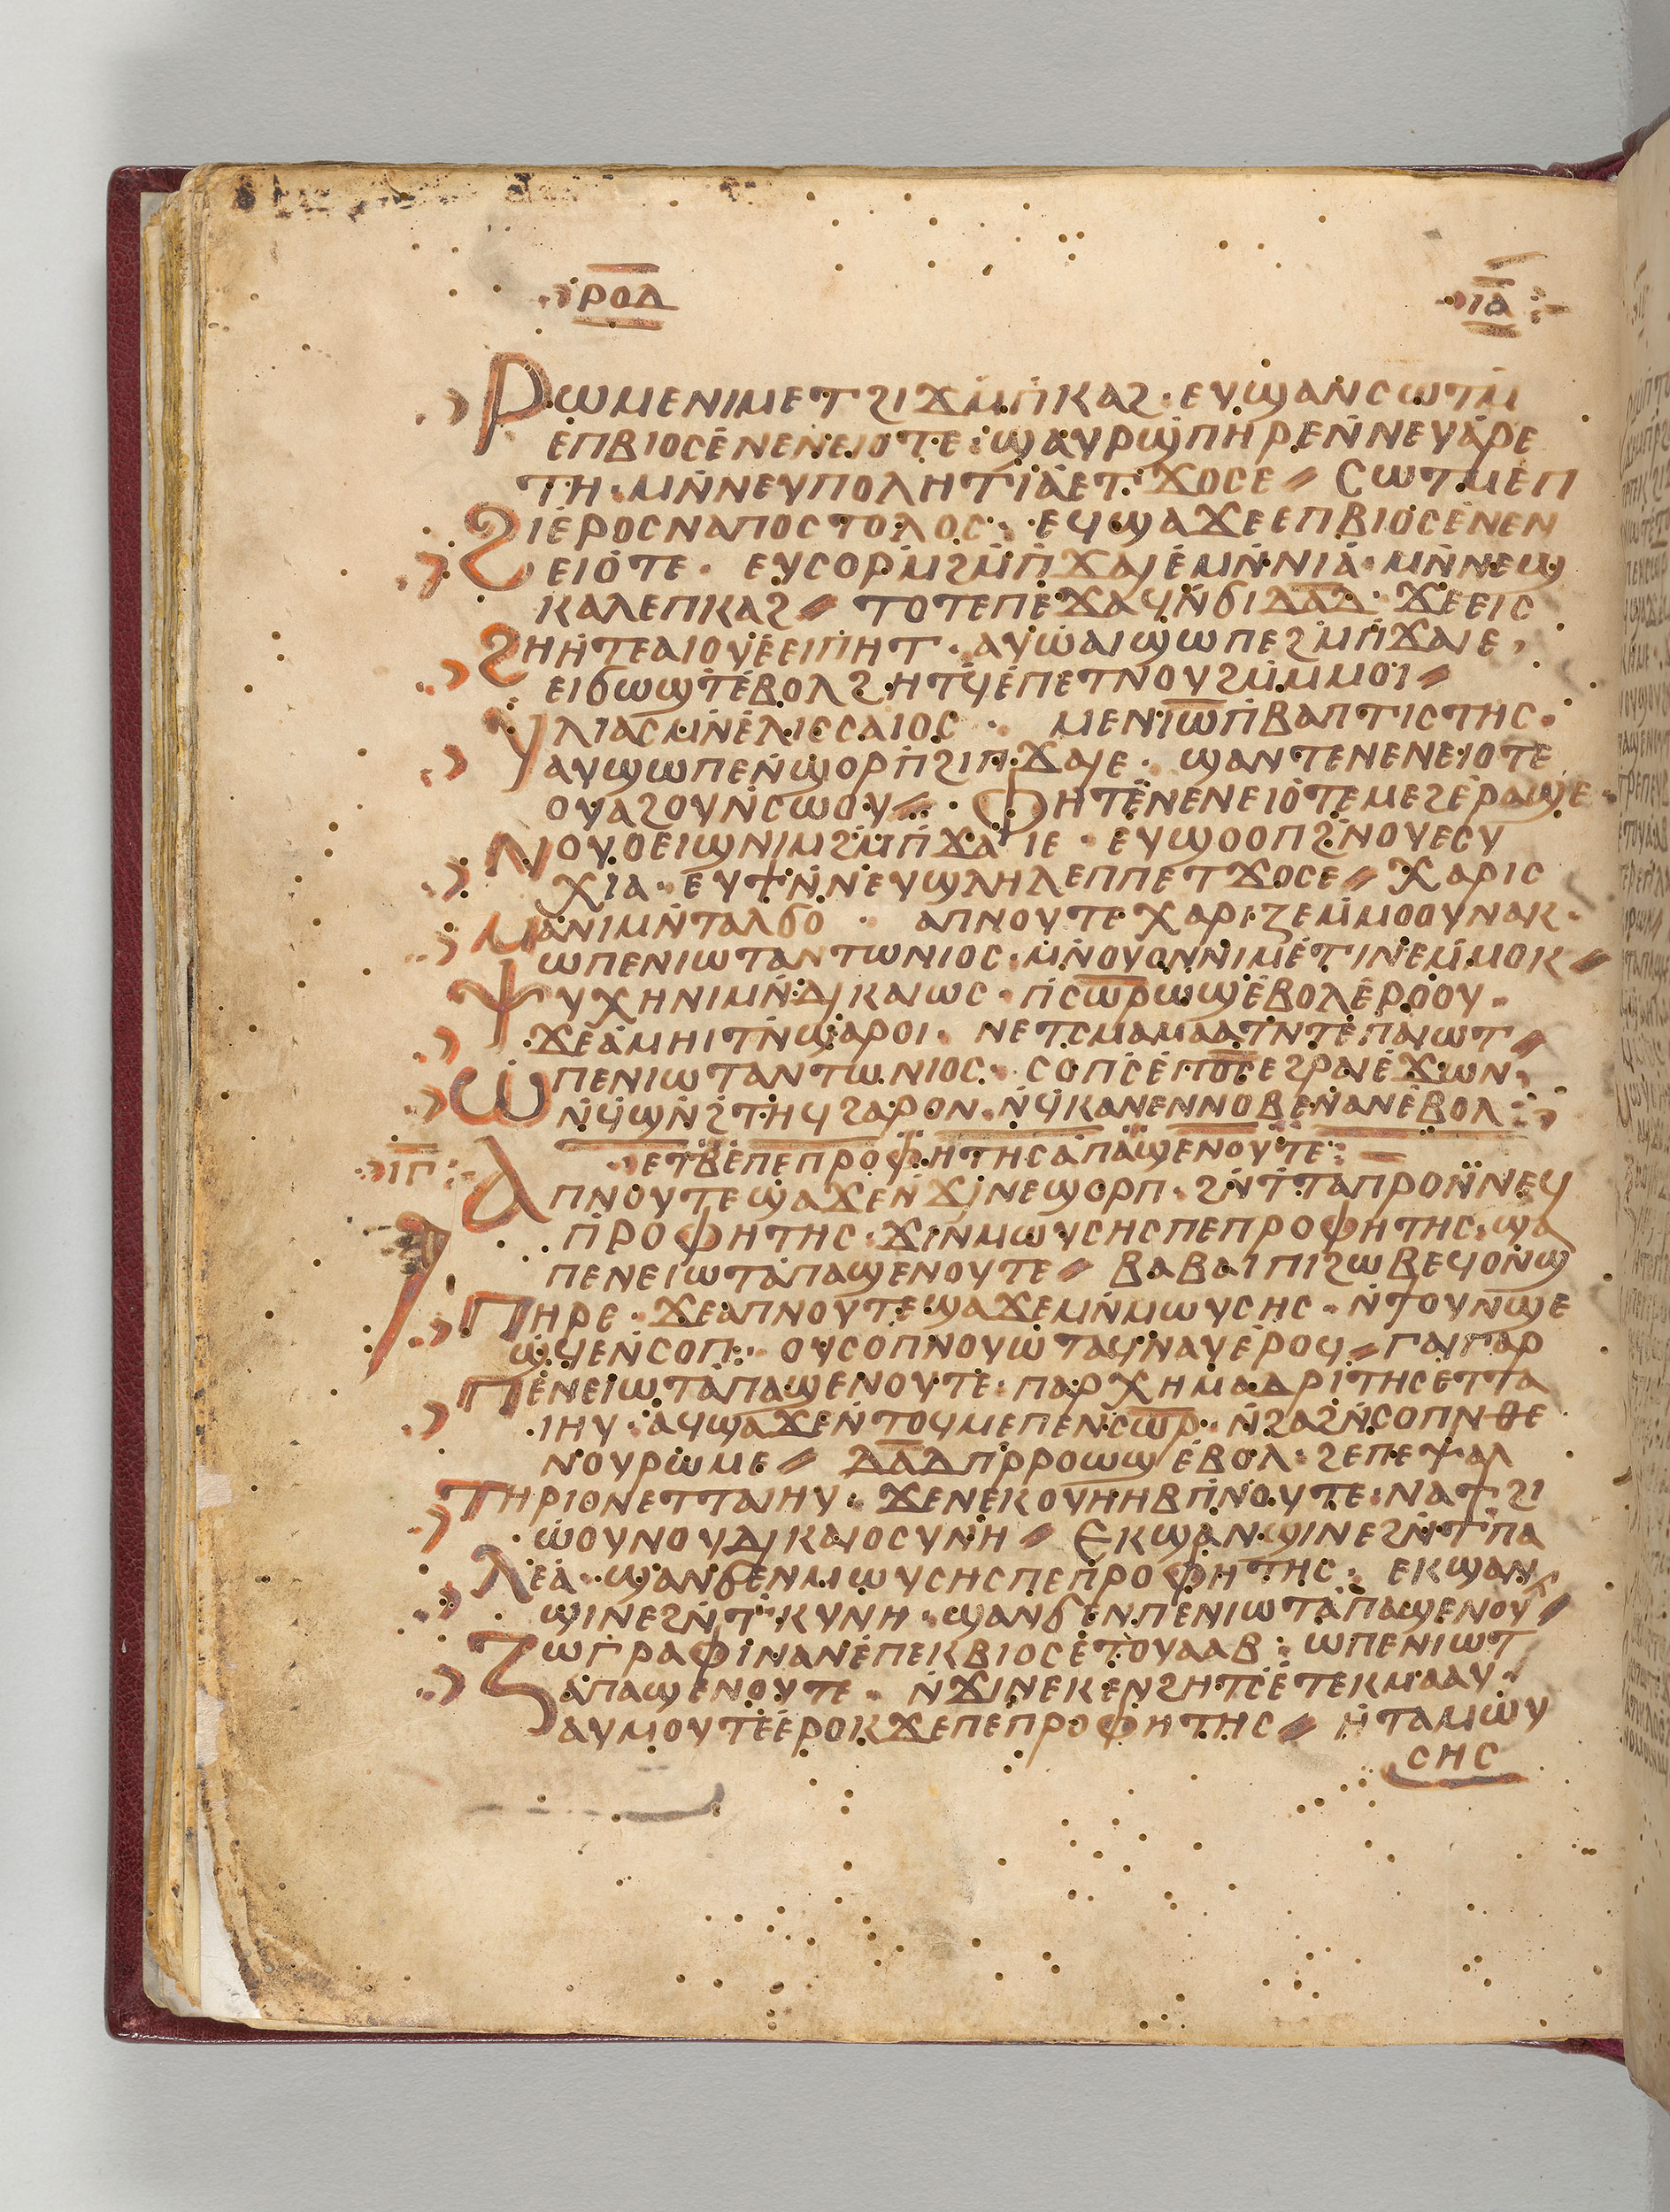 ⲣⲟⲇ ⲓⲁ
Ⲣⲱⲙⲉⲛⲓⲙⲉⲧϩⲓϫⲙⲡⲕⲁϩ · ⲉⲩϣⲁⲛⲥⲱⲧⲙ
ⲉⲡⲃⲓⲟⲥⲉⲛⲉⲛⲉⲓⲟⲧⲉ · ϣⲁⲩⲣϣⲡⲏⲣⲉⲛⲛⲉⲩⲁⲣⲉ
ⲧⲏ · ⲙⲛⲛⲉⲩⲡⲟⲗⲏⲧⲓⲁⲉⲧϫⲟⲥⲉ ⳿ ⲥⲱⲧⲙⲉⲡ
Ϩⲓⲉⲣⲟⲥⲛⲁⲡⲟⲥⲧⲟⲗⲟⲥ · ⲉϥϣⲁϫⲉⲉⲡⲃⲓⲟⲥⲉⲛⲉⲛ
ⲉⲓⲟⲧⲉ · ⲉⲩⲥⲟⲣⲙϩⲙⲡϫⲁⲓⲉⲙⲛⲛⲓⲁ · ⲙⲛⲛⲉϣ
ⲕⲁⲗⲉⲡⲕⲁϩ ⳿ ⲧⲟⲧⲉⲡⲉϫⲁϥⲛϭⲓⲇⲁⲇ · ϫⲉⲉⲓⲥ
Ϩⲏⲏⲧⲉⲁⲓⲟⲩⲉⲉⲓⲡⲏⲧ · ⲁⲩⲱⲁⲓϣⲱⲡⲉϩⲙⲡϫⲁⲓⲉ ·
ⲉⲓϭⲱϣⲧⲉⲃⲟⲗϩⲏⲧϥⲉⲡⲉⲧⲛⲟⲩϩⲙⲙⲙⲟⲓ ⳿
Ⲩⲗⲓⲁⲥⲙⲛⲉⲗⲓⲥⲥⲁⲓⲟⲥ · ⲙⲉⲛⲓⲱⲡⲃⲁⲡⲧⲓⲥⲧⲏⲥ ·
ⲁⲩϣⲱⲡⲉⲛϣⲟⲣⲡϩⲓⲡϫⲁⲓⲉ · ϣⲁⲛⲧⲉⲛⲉⲛⲉⲓⲟⲧⲉ
ⲟⲩⲁϩⲟⲩⲛⲥⲱⲟⲩ ⳿ · Ⲫⲏⲧⲉⲛⲉⲛⲉⲓⲟⲧⲉⲙⲉϩⲉⲣⲁϣⲉ ·
Ⲛⲟⲩⲟⲉⲓϣⲛⲓⲙϩⲙⲡϫⲁⲓⲉ · ⲉⲩϣⲟⲟⲡϩⲛⲟⲩⲉⲥⲩ
ⲭⲓⲁ · ⲉⲩϯⲛⲛⲉⲩϣⲗⲏⲗⲉⲡⲡⲉⲧϫⲟⲥⲉ ⳿ ⲭⲁⲣⲓⲥ
Ⲙⲁⲛⲓⲙⲛⲧⲁⲗϭⲟ · ⲁⲡⲛⲟⲩⲧⲉⲭⲁⲣⲓⲍⲉⲙⲙⲟⲟⲩⲛⲁⲕ ·
ⲱⲡⲉⲛⲓⲱⲧⲁⲛⲧⲱⲛⲓⲟⲥ · ⲙⲛⲟⲩⲟⲛⲛⲓⲙⲉⲧⲓⲛⲉⲙⲙⲟⲕ ⳿
Ⲯⲩⲭⲏⲛⲓⲙⲛⲇⲓⲕⲁⲓⲱⲥ · ⲡⲥⲱⲣⲱϣⲉⲃⲟⲗⲉⲣⲟⲟⲩ ·
ϫⲉⲁⲙⲏⲓⲧⲛϣⲁⲣⲟⲓ · ⲛⲉⲧⲥⲙⲁⲙⲁⲁⲧⲛⲧⲉⲡⲁⲓⲱⲧ ⳿
Ⲱⲡⲉⲛⲓⲱⲧⲁⲛⲧⲱⲛⲓⲟⲥ · ⲥⲟⲡⲥⲉⲡⲟⲥⲉϩⲣⲁⲓⲉϫⲱⲛ ·
ⲛϥϣⲛϩⲧⲏϥϩⲁⲣⲟⲛ · ⲛϥⲕⲁⲛⲉⲛⲛⲟⲃⲉⲛⲁⲛⲉⲃⲟⲗ
ⲓⲡ ⲉⲧⲃⲉⲡⲉⲡⲣⲟⲫⲏⲧⲏⲥⲁⲡⲁϣⲉⲛⲟⲩⲧⲉ
Ⲁⲡⲛⲟⲩⲧⲉϣⲁϫⲉⲛϫⲓⲛⲉϣⲟⲣⲡ · ϩⲛⲧⲧⲁⲡⲣⲟⲛⲛⲉϥ
ⲡⲣⲟⲫⲏⲧⲏⲥ · ϫⲓⲛⲙⲱⲩⲥⲏⲥⲡⲉⲡⲣⲟⲫⲏⲧⲏⲥ · ϣⲁ
ⲡⲉⲛⲉⲓⲱⲧⲁⲡⲁϣⲉⲛⲟⲩⲧⲉ ⳿ ⲃⲁⲃⲁⲓⲡⲓϩⲱⲃⲉϥⲟⲛϣ
Ⲡⲏⲣⲉ · ϫⲉⲁⲡⲛⲟⲩⲧⲉϣⲁϫⲉⲙⲛⲙⲱⲩⲥⲏⲥ · ⲛϯⲟⲩⲛϣⲉ
ϣϥⲉⲛⲥⲟⲡ · ⲟⲩⲥⲟⲡⲛⲟⲩⲱⲧⲁϥⲛⲁⲩⲉⲣⲟϥ ⳿ ⲡⲁⲓⲅⲁⲣ
Ⲡⲉⲛⲉⲓⲱⲧⲁⲡⲁϣⲉⲛⲟⲩⲧⲉ · ⲡⲁⲣⲭⲏⲙⲁⲇⲣⲓⲧⲏⲥⲉⲧⲧⲁ
ⲓⲏⲩ · ⲁϥϣⲁϫⲉⲛⲧⲟϥⲙⲉⲡⲉⲛⲥⲱⲣ · ⲛϩⲁϩⲛⲥⲟⲡⲛⲑⲉ
ⲛⲟⲩⲣⲱⲙⲉ ⳿ ⲇⲁⲇⲡⲣⲣⲟⲱϣⲉⲃⲟⲗ · ϩⲉⲡⲉⲯⲁⲗ
Ⲧⲏⲣⲓⲟⲛⲉⲧⲧⲁⲓⲏⲩ · ϫⲉⲛⲉⲕⲟⲩⲏⲏⲃⲡⲛⲟⲩⲧⲉ · ⲛⲁϯϩⲓ
ⲱⲟⲩⲛⲟⲩⲇⲓⲕⲁⲓⲟⲥⲩⲛⲏ ⳿ Ⲉⲕϣⲁⲛϣⲓⲛⲉϩⲛⲧⲡⲁ
Ⲗⲉⲁ · ϣⲁⲛϭⲉⲛⲙⲱⲩⲥⲏⲥⲡⲉⲡⲣⲟⲫⲏⲧⲏⲥ · ⲉⲕϣⲁⲛ
ϣⲓⲛⲉϩⲛⲧⲕⲩⲛⲏ · ϣⲁⲛϭⲓⲛⲡⲉⲛⲓⲱⲧⲁⲡⲁϣⲉⲛⲟⲩ ⳿
Ⲍⲱⲅⲣⲁⲫⲓⲛⲁⲛⲉⲡⲉⲕⲃⲓⲟⲥⲉⲧⲟⲩⲁⲁⲃ · ⲱⲡⲉⲛⲓⲱⲧ
ⲁⲡⲁϣⲉⲛⲟⲩⲧⲉ · ⲛϫⲓⲛⲉⲕⲉⲛϩⲏⲧⲥⲉⲧⲉⲕⲙⲁⲁⲩ ·
ⲁⲩⲙⲟⲩⲧⲉⲉⲣⲟⲕϫⲉⲡⲉⲡⲣⲟⲫⲏⲧⲏⲥ ⳿ ⲏⲧⲁⲙⲱⲩ
ⲥⲏⲥ